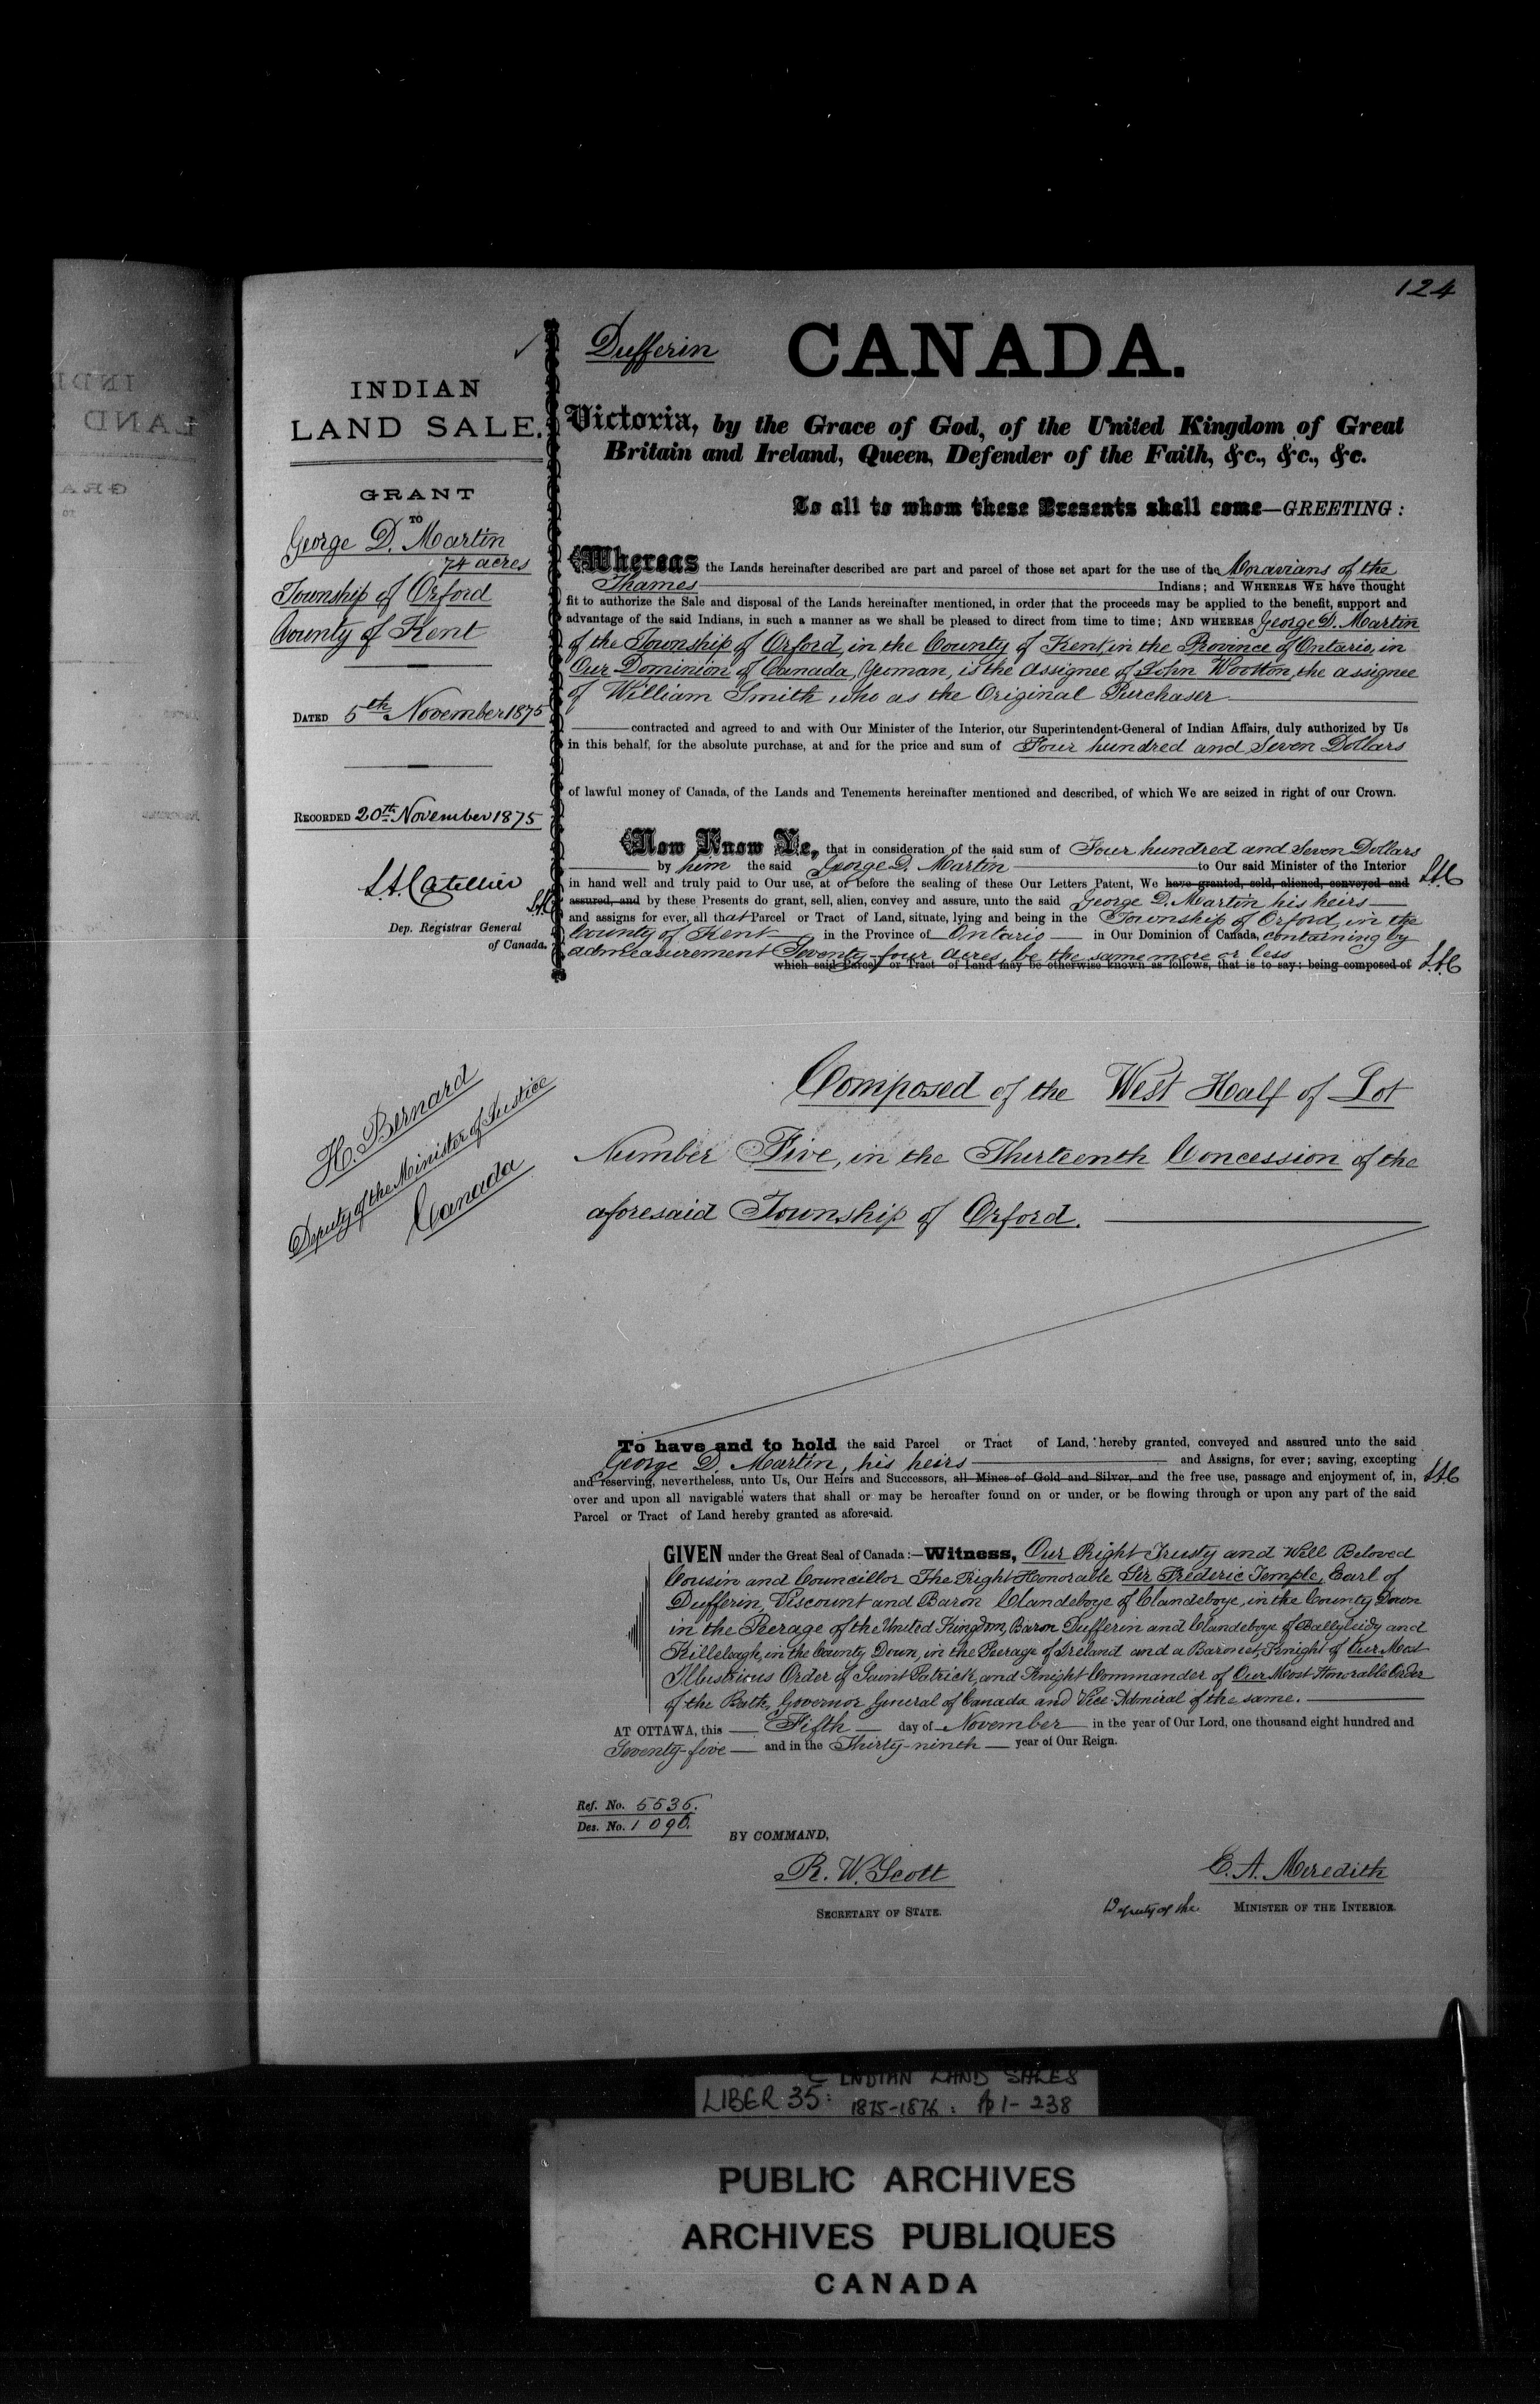 124
INDIAN
LAND SALE.
GRANT
TO
George D. Martin
74 acres
Township of Orford
County of Kent
DATED 5th November 1875
RECORDED 20th November 1875
L.A. Catellier
L.A.C
Dep. Registrar General
of Canada.
H. Bernard
Deputy of the Minister of Justice
Canada
Dufferin
CANADA.
Victoria, by the Grace of God, of the United Kingdom of Great
Britain and Ireland, Queen, Defender of the Faith, &c., &c., &c.
To all to whom these Presents shall come—GREETING:
Whereas the Lands hereinafter described are part and parcel of those set apart for the use of the Moravians of the
Thames Indians; and WHEREAS WE have thought
fit to authorize the Sale and disposal of the Lands hereinafter mentioned, in order that the proceeds may be applied to the benefit, support and
advantage of the said Indians, in such a manner as we shall be pleased to direct from time to time; AND WHEREAS George D. Martin
of the Township of Orford, in the County of Kent, in the Province of Ontario, in
Our Dominion of Canada, Yeoman, is the Assignee of John Wootton, the assignee
of William Smith who as the Original Purchaser
contracted and agreed to and with Our Minister of the Interior, our Superintendent-General of Indian Affairs, duly authorized by Us
in this behalf, for the absolute purchase, at and for the price and sum of Four hundred and Seven Dollars
of lawful money of Canada, of the Lands and Tenements hereinafter mentioned and described, of which We are seized in right of our Crown.
Now Know Ye, that in consideration of the said sum of Four hundred and Seven Dollars
by him the said George D. Martin to Our said Minister of the Interior
in hand well and truly paid to Our use, at or before the sealing of these Our Letters Patent, We have granted, sold, aliened, conveyed and L.A.C
assured, and by these Presents do grant, sell, alien, convey and assure, unto the said George D. Martin his heirs
and assigns for ever, all that Parcel or Tract of Land, situate, lying and being in the Township of Orford, in the
County of Kent in the Province of Ontario in Our Dominion of Canada, containing by
admeasurement Seventy-four acres, be the same more or less
which said Parcel or Tract of Land may be otherwise known as follows, that is to say: being composed of L.A.C
Composed of the West Half of Lot
Number Five, in the Thirteenth Concession of the
aforesaid Township of Orford.
To have and to hold the said Parcel or Tract of Land, hereby granted, conveyed and assured unto the said
George D. Martin, his heirs and Assigns, for ever; saving, excepting
and reserving, nevertheless, unto Us, Our Heirs and Successors, all Mines of Gold and Silver, and the free use, passage and enjoyment of, in, L.A.C
over and upon all navigable waters that shall or may be hereafter found on or under, or be flowing through or upon any part of the said
Parcel or Tract of Land hereby granted as aforesaid.
GIVEN under the Great Seal of Canada:—Witness, Our Right Trusty and Well Beloved
Cousin and Councillor The Right Honorable Sir Frederic Temple, Earl of
Dufferin, Viscount and Baron Clandeboye of Clandeboye, in the County Down
in the Peerage of the United Kingdom, Baron Dufferin and Clandeboye of Ballyleidy and
Killeleagh, in the County Down, in the Peerage of Ireland and a Baronet, Knight of Our Most
Illustrious Order of Saint Patrick, and Knight Commander of Our Most Honorable Order
of the Bath, Governor General of Canada and Vice Admiral of the same.
AT OTTAWA, this Fifth day of November in the year of Our Lord, one thousand eight hundred and
Seventy-five and in the Thirty-ninth year of Our Reign.
Ref. No. 5536.
Des. No. 1090.
BY COMMAND,
R. W. Scott
SECRETARY OF STATE.
E. A. Meredith
Deputy of the MINISTER OF THE INTERIOR.
INDIAN LAND SALES
LIBER 35: 1875-1876: pp 1-238
PUBLIC ARCHIVES
ARCHIVES PUBLIQUES
CANADA